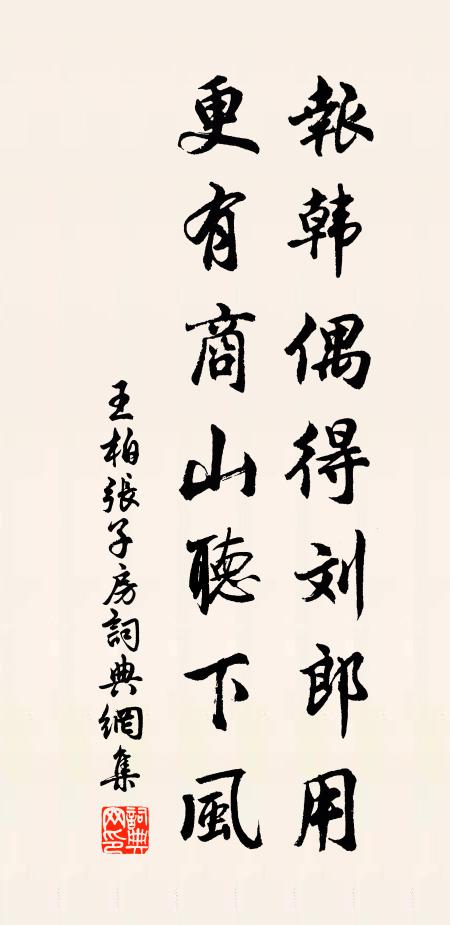 報韩偶得刘郎用
更有商山聽下風
王柏張子房詞典網集
詞典网印